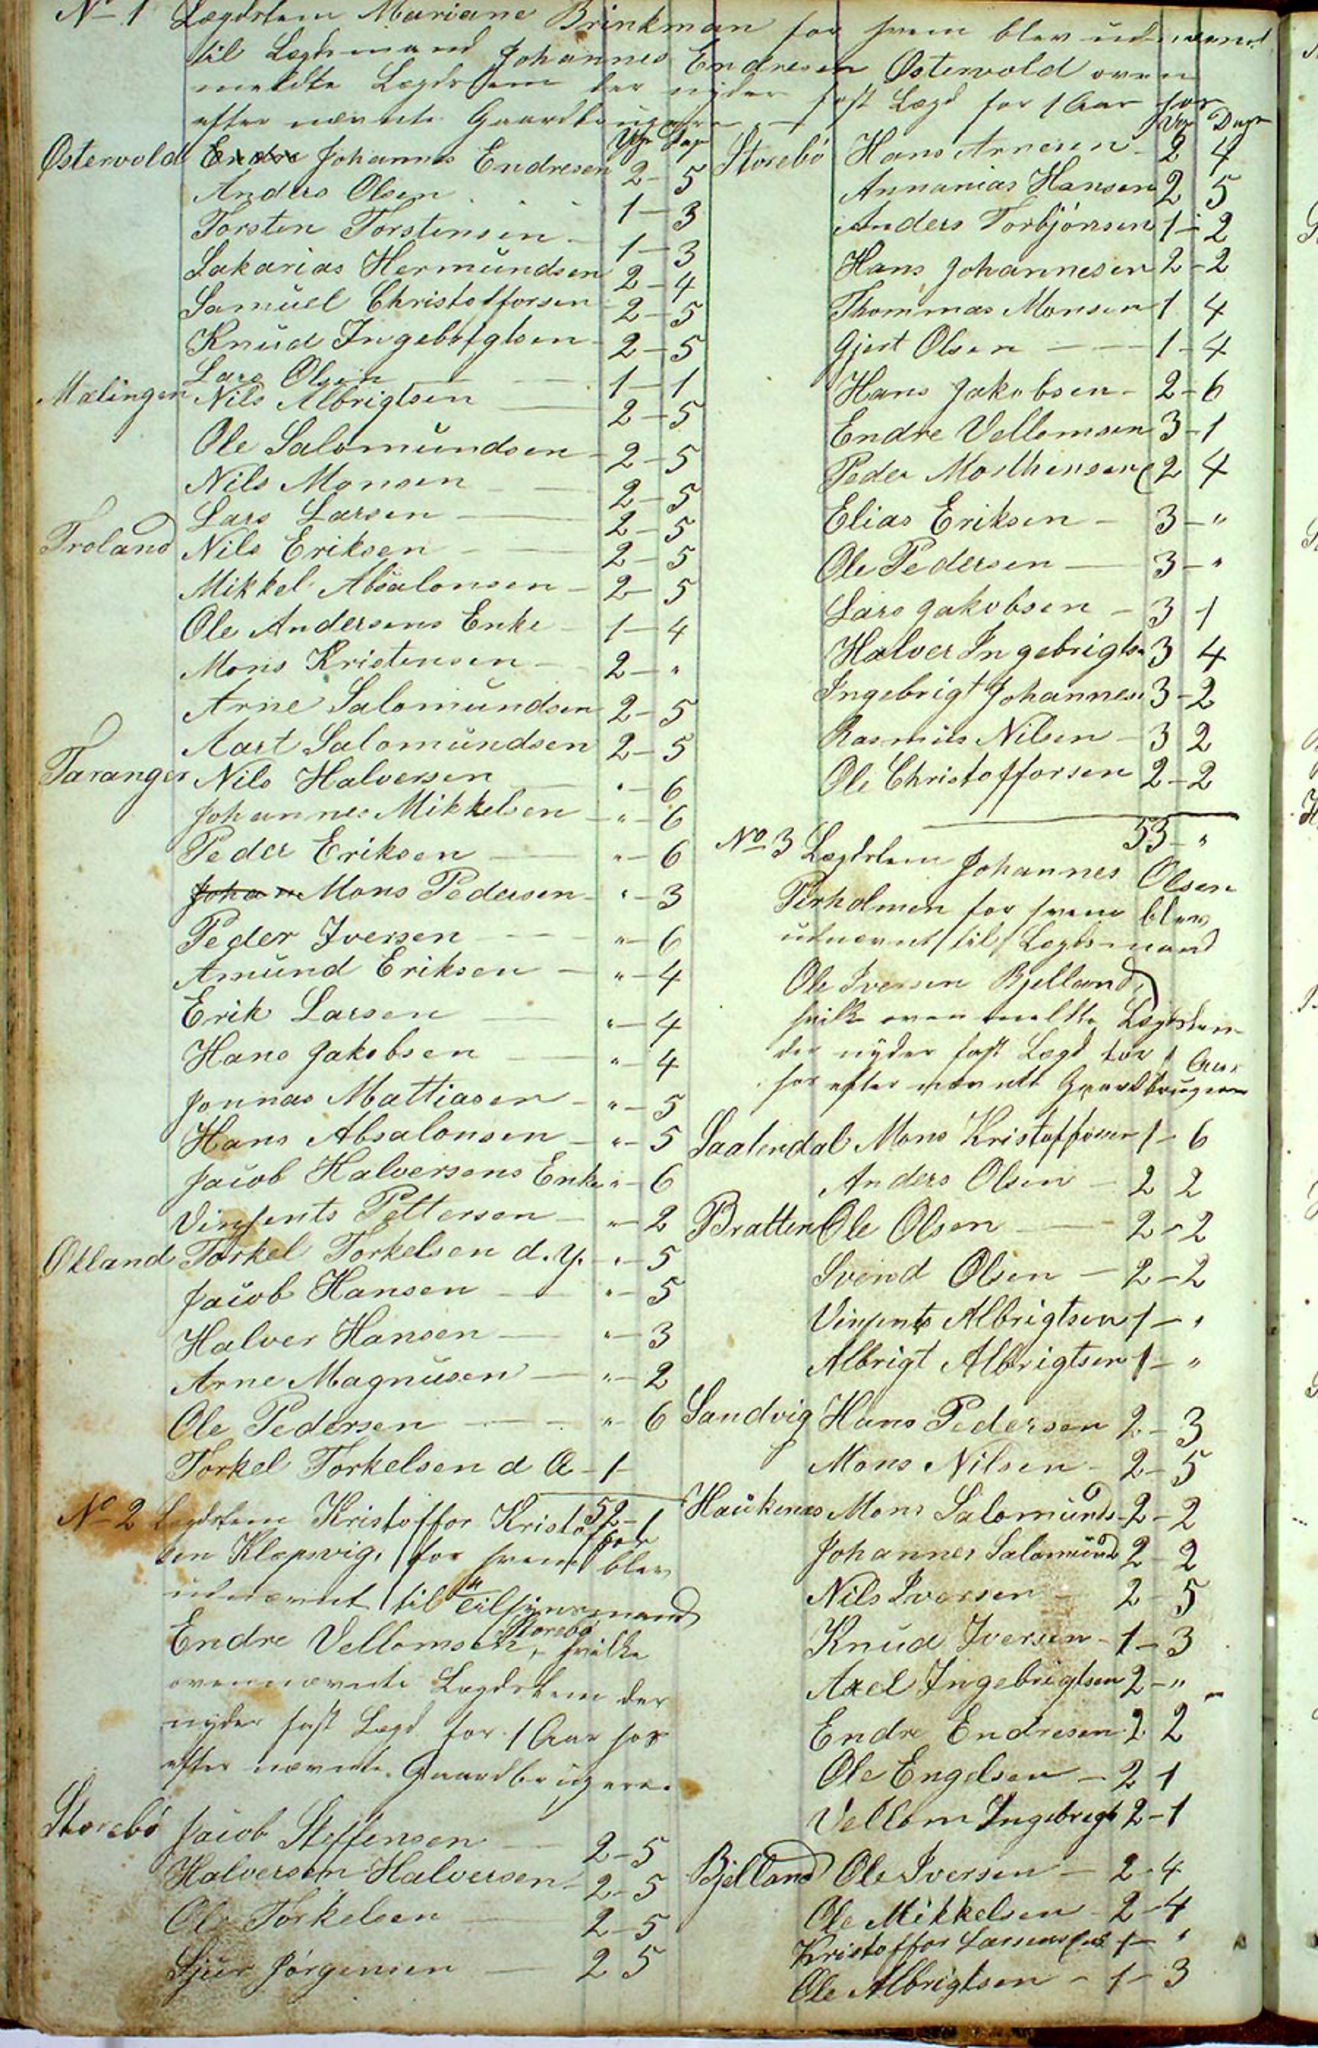 No 1 Lægdslem Mariane Brinkman for hvem blev udnævnt
til Lægdsmand Johannes Endresen Ostervold oven
meldte Lægdslem der nyder fast Lægd for 1 Aar hos
efter nævnte Gaardbrugere
Uger Dage
Ostervold Endre Johannes Endresen 2 - 5
Anders Olsen 1 - 3
Torsten Torstensen 1 - 3
Sakarias Hermundsen 2 - 4
Samuel Christoffersen 2 - 5
Knud Ingebrigtsen 2 - 5
Lars Olsen 1 - 1
Mælingen Nils Albrigtsen 2 - 5
Ole Salomundsen 2 - 5
Nils Monsen 2 - 5
Lars Larsen 2 - 5
Troland Nils Eriksen 2 - 5
Mikkel Absalonsen 2 - 5
Ole Andersens Enke 1 - 4
Mons Kristensen 2 - "
Arne Salomundsen 2 - 5
Aart Salomundsen 2 - 5
Taranger Nils Halversen " - 6
Johannes Mikkelsen " - 6
Peder Eriksen " - 6
Johan Mons Pedersen " - 3
Peder Iversen " - 6
Amund Eriksen " - 4
Erik Larsen " - 4
Hans Jakobsen " - 4
Jonnas Mattiasen " - 5
Hans Absalonsen " - 5
Jacob Halversens Enke " - 6
Vinsents Pettersen " - 2
Otland Torkel Torkelsen d. y. " - 5
Jacob Hansen " - 5
Halver Hansen " - 3
Arne Magnusen " - 2
Ole Pedersen " - 6
Torkel Torkelsen d Æ - 1 -
52 - 1
No 2 Lægdslem Kristoffor Kristoffor
sen Klepsvig, for hvem blev
udnævnt til Tilsynsmand
Endre Vellomsen Storebø, hvilke
ovennævnte Lægdslem der
nyder fast Lægd for 1 Aar hos
efter nævnte Gaardbrugere.
Storebø Jacob Steffensen 2 - 5
Halversen Halversen 2 - 5
Ole Torkelsen 2 - 5
Sjur Jørgensen 2 5
Uger Dage
Storebø Hans Arnesen 2 4
Annanias Hansen 2 5
Anders Torbjørnsen 1 - 2
Hans Johannesen 2 - 2
Thommas Monsen 1 4
Gjert Olsen 1 - 4
Hans Jakobsen 2 - 6
Endre Vellomsen 3 - 1
Peder Mosthensen 2 4
Elias Eriksen 3 - "
Ole Pedersen 3 - "
Lars Jakobsen 3 1
Halver Ingebrigts 3 4
Ingebrigt Johannes 3 - 2
Rasmus Nilsen 3 2
Ole Christofforsen 2 - 2
53 - "
No 3 Lægdslem Johannes Olsen
Perholmen for hvem blev
udnævnt til Lægdsmand
Ole Iversen Bjelland,
hvilke oven meldte Lægdslem
der nyder fast Lægd for 1 Aar
hos efter nævnte Gaardbrugere
Saatendal Mons Kristoffersen 1 - 6
Anders Olsen 2 2
Bratten Ole Olsen 2 - 2
Svend Olsen 2 - 2
Vinsents Albrigtsen 1 - "
Albrigt Albrigtsen 1 - "
Sandvig Hans Pedersen 2 - 3
Mons Nilsen 2 - 5
Haukenæs Mons Salomunds 2 - 2
Johannes Salomund 2 - 2
Nils Iversen 2 - 5
Knud Iversen 1 - 3
Axel Ingebrigtsen 2 - "
Endre Endresen 2 2
Ole Engelsen 2 1
Vellom Ingebregt 2 - 1
Bjelland Ole Iversen 2 - 4
Ole Mikkelsen 2 - 4
Kristoffor Larsens Enke 1 - "
Ole Albrigtsen 1 - 3